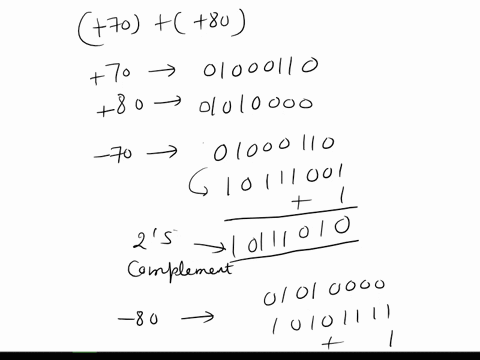 (+70) + (+80)
+70 → 01000110
+80 → 01010000
-70 → 01000110
10111001
+ 1
2's → 10111010
Complement
-80 → 01010000
10101111
+ 1